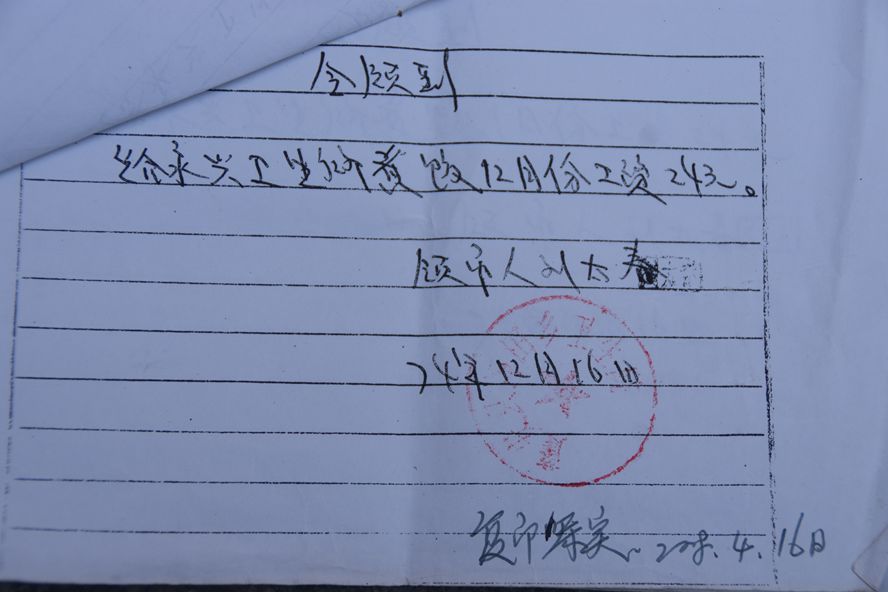 今领到
给永兴卫生所煮饭12月份工资243。
领币人刘太寿
74年12月16日
复印属实
4.16日